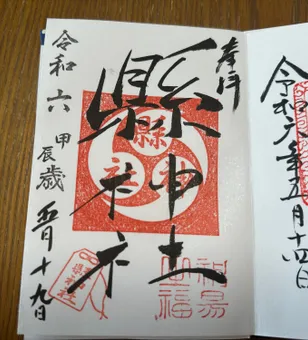 奉拝
縣神社
縣神社
令和六 甲辰歳 五月十九日
令和六年五月十四日